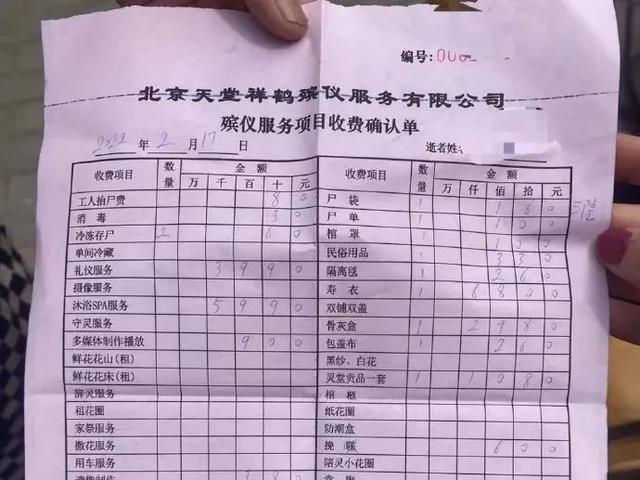 编号: 000
北京天堂祥鹤殡仪服务有限公司
殡仪服务项目收费确认单
2022 年 2 月 17 日 逝者姓名
收费项目 数量 金额 万 千 百 十 元 收费项目 数量 金额 万 仟 佰 拾 元
工人抬尸费 8 0 尸袋 1 1 6 0
消毒 3 0 尸单 1 1 0 0
冷冻存尸 2 6 0 棺罩 1 1 0 0
单间冷藏 民俗用品 3 3 0
礼仪服务 3 9 9 0 隔离毯 1 2 6 0
摄像服务 寿衣 1 6 8 0 0
沐浴SPA服务 5 9 9 0 双铺双盖
守灵服务 骨灰盒 1 2 9 8 0
多媒体制作播放 9 0 0 包盖布 1 2 6 0
鲜花花山(租) 黑纱、白花
鲜花花床(租) 灵堂贡品一套 1 1 0 8 0
辞灵服务 棺柩
租花圈 纸花圈
家祭服务 防潮盒
撒花服务 挽联 6 0 0
用车服务 陪灵小花圈
遗像制作 3 8 0